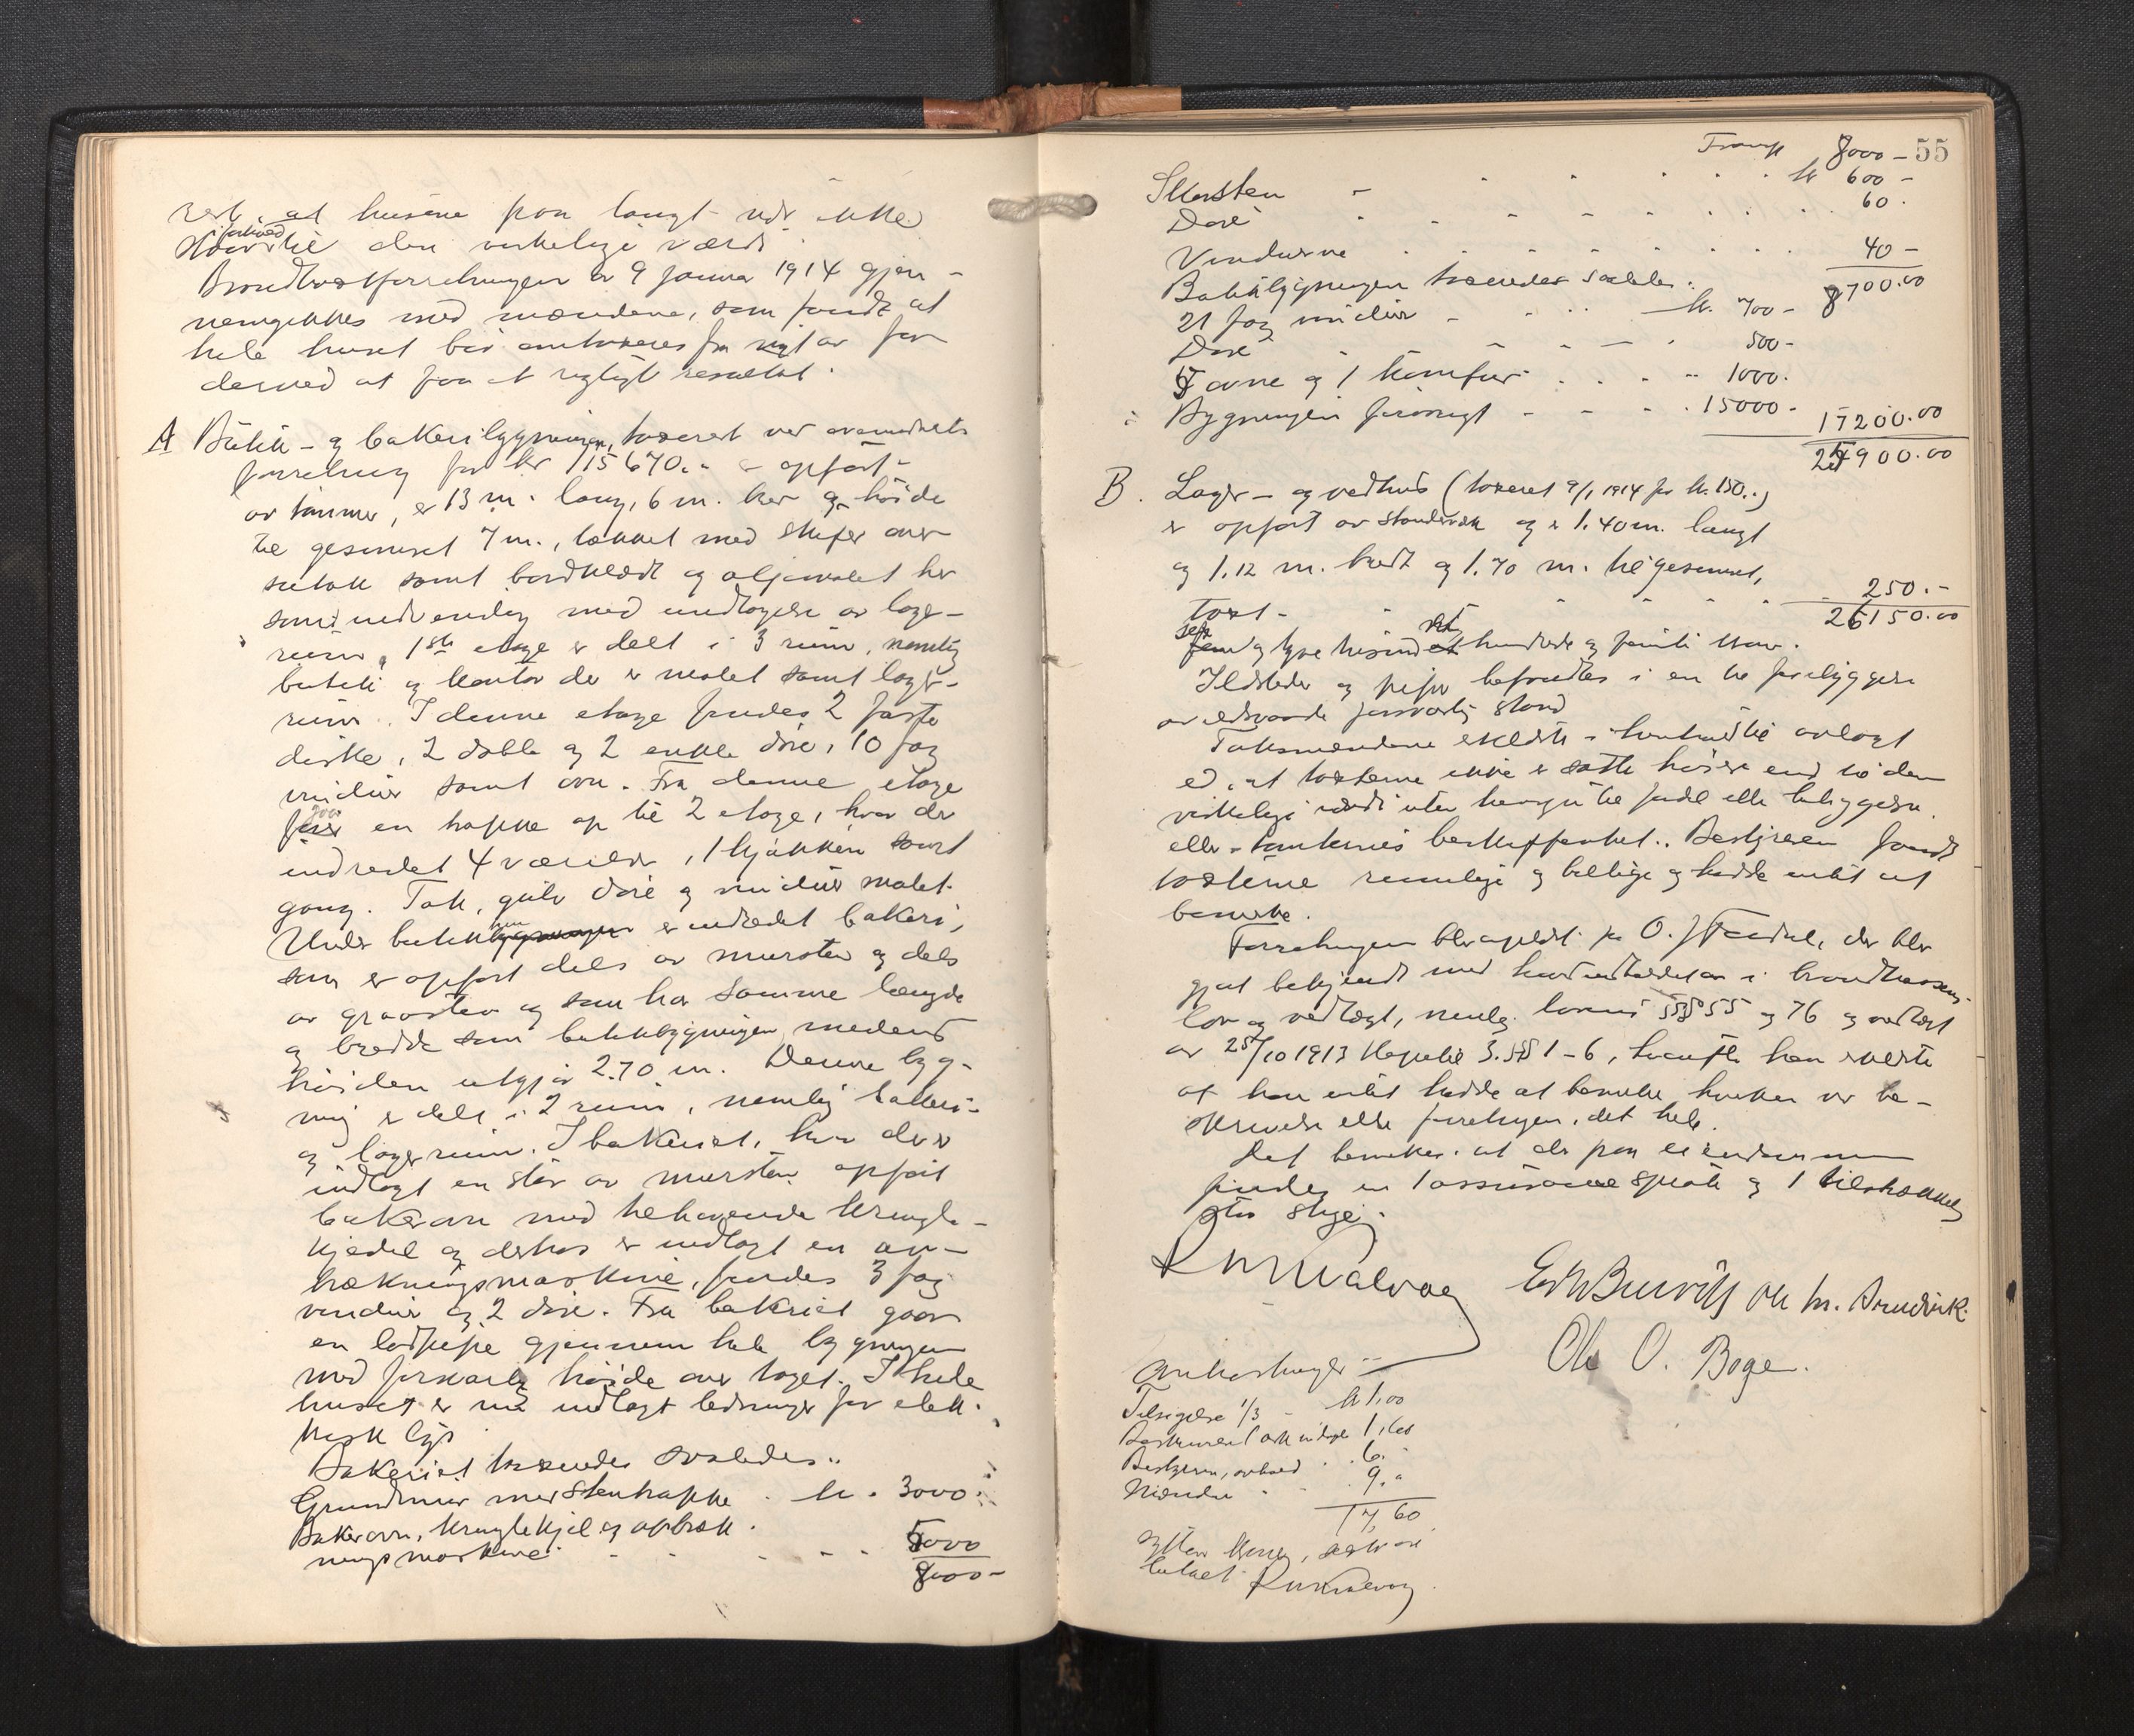 at husene paa langt nær ikke
staar i forhold til den virkelige værdi.
Brandtaxtforretningen av 9 januar 1914 gjen-
nemgikkes med mændene, som fandt at
hele huset bør omtaxeres fra nyt av for
derved at faa et rigtigt resultat.
A Butik- og bakeribygningen, taxeret ved ovennævnte
forretning for kr 15670.- er opført
av tømmer, er 13 m. lang, 6 m. bred og høide
til gesimset 7 m., tækket med skifer over
sutak samt bordklædt og oljemalet
samt indvendig med undtagelse av lager-
rum. 1ste etage er delt i 3 rum, nemlig
butik og kontor der er malet samt lager-
rum. I denne etage findes 2 faste
diske, 2 doble og 2 enkle døre, 10 fag
vinduer samt ovn. Fra denne etage
gaar en trappe op til 2 etage, hvor der er
indredet 4 værelser, 1 kjøkken samt
gang. Tak, gulv døre og vinduer malet.
Under butikken er indredet bakeri,
som er opført dels av mursten og dels
av graasten og som har samme længde
og bredde som butikbygningen, medens
høiden utgjør 2.70 m. Denne byg-
ning er delt i 2 rum, nemlig bakeri-
og lagerrum. I bakeriet, hvor der er
indlagt en stor av mursten opført
bakerovn med tilhørende kringle-
kjedel og derhos er indlagt en op-
trækningsmaskine, findes 3 fag
vinduer og 2 døre. Fra bakeriet gaar
en lodpipe gjennem hele bygningen
med forsvarlig høide over taget. I hele
huset er nu indlagt ledninger for elek-
trisk lys.
Bakeriet taxeredes saaledes:
Grundmur med stentrappe . kr. 3000.-
Bakerovn, kringlekjel og optræk-
ningsmaskine - - - 5000
8000-
55
Transp 8000-
Skorsten - - - kr 600-
Døre - - - 60.
Vinduerne - - - 40-
8700.00
Butikbygningen taxeredes saaledes:
21 fag vinduer - - - kr. 700-
Døre - - - 500-
5 ovne og 1 komfur - - - 1000.
Bygningen forøvrigt - - - 15000- 17200.00
25900.00
B. Lager- og vedhus (taxeret 9/1 1914 for kr. 150.-)
er opført av standerverk og er 1.40 m. langt
og 1.12 m. bredt og 1.70 m. til gesimset,
taxt - - - 250.-
26150.00
seks og tyve tusind et hundrede og femti kroner.
Ildsteder og piper befandtes i en til forebyggelse
av ildsvaade forsvarlig stand
Taksmændene erklærte i henhold til avlagt
ed, at taxterne ikke er satte høiere end til den
virkelige værdi uten hensyn til fordel eller beliggenhet
eller tomtens beskaffenhet. Bestyreren fandt
taxterne rimelige og billige og hadde intet at
bemerke.
Forretningen blev oplæst for O. J. , der blev
gjort bekjendt med hovedindholdet av i brandkassens
lov og vedtægt, nemlig lovens §§ 55 og 76 og vedtægt
av 25/10 1913 Kapitel 3. §§ 1-6, hvorefter han erklærte
at han intet hadde at bemerke hverken ved be-
skrivelse eller forretningen, det hele.
Det bemerkes at der paa eiendommen
findes en 1 assuranse sprøite og 1 tilstrækkelig
stor stige.
Ole M. Arnevik.
Ole O. Boge.
Omkostninger:
Tilsigelse 1/3 - kr 1.00
1,60
Bestyreren, arbeid . . 6.-
Mændene - . 9.-
17,60
sytten kroner, sekti øre
betalt.